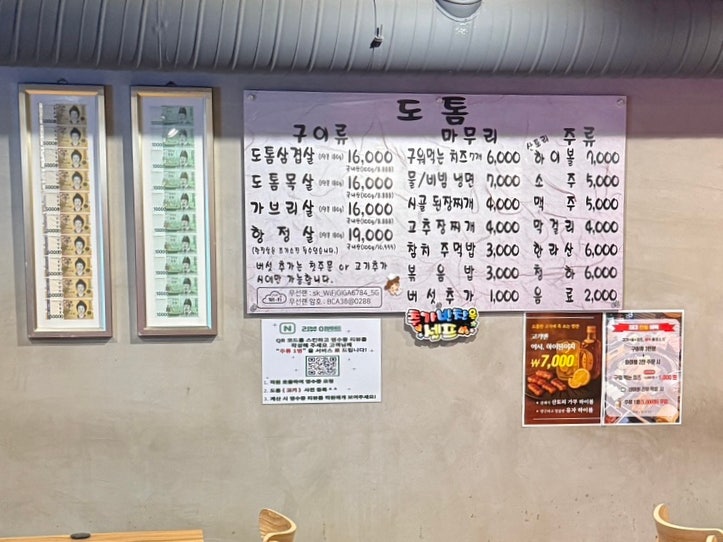 도톰
구이류
도톰삼겹살 (1인분 180g) 16,000
국내산(100g/8.888)
도톰목살 (1인분 180g) 16,000
국내산(100g/8.888)
가브리살 (1인분 180g) 16,000
국내산(100g/8.888)
항정살 (1인분 180g) 19,000
버섯 추가는 첫주문 or 고기추가
시에만 가능합니다.
Wi-Fi
무선랜 : sk_WiFiGIGA6784_5G
무선랜 암호 : BCA36@0288
마무리
구워먹는 치즈 7개 6,000
물/비빔 냉면 7,000
시골 된장찌개 4,000
고추장찌개 4,000
참치 주먹밥 3,000
볶음밥 3,000
버섯추가 1,000
주류
산토리 하이볼 7,000
소주 5,000
맥주 5,000
막걸리 4,000
한라산 6,000
청하 6,000
음료 2,000
추가반찬은
셀프
N 리뷰 이벤트
QR 코드를 스캔하고 영수증 리뷰를
작성해 주세요 고객님께
"주류 1병"을 서비스로 드립니다!
1. 직원 호출하여 영수증 요청
2. 도톰 ( 고기 ) 사진 등록
3. 계산 시 영수증 리뷰를 직원에게 보여주세요!
고기엔
역시, 하이볼이지
₩7,000